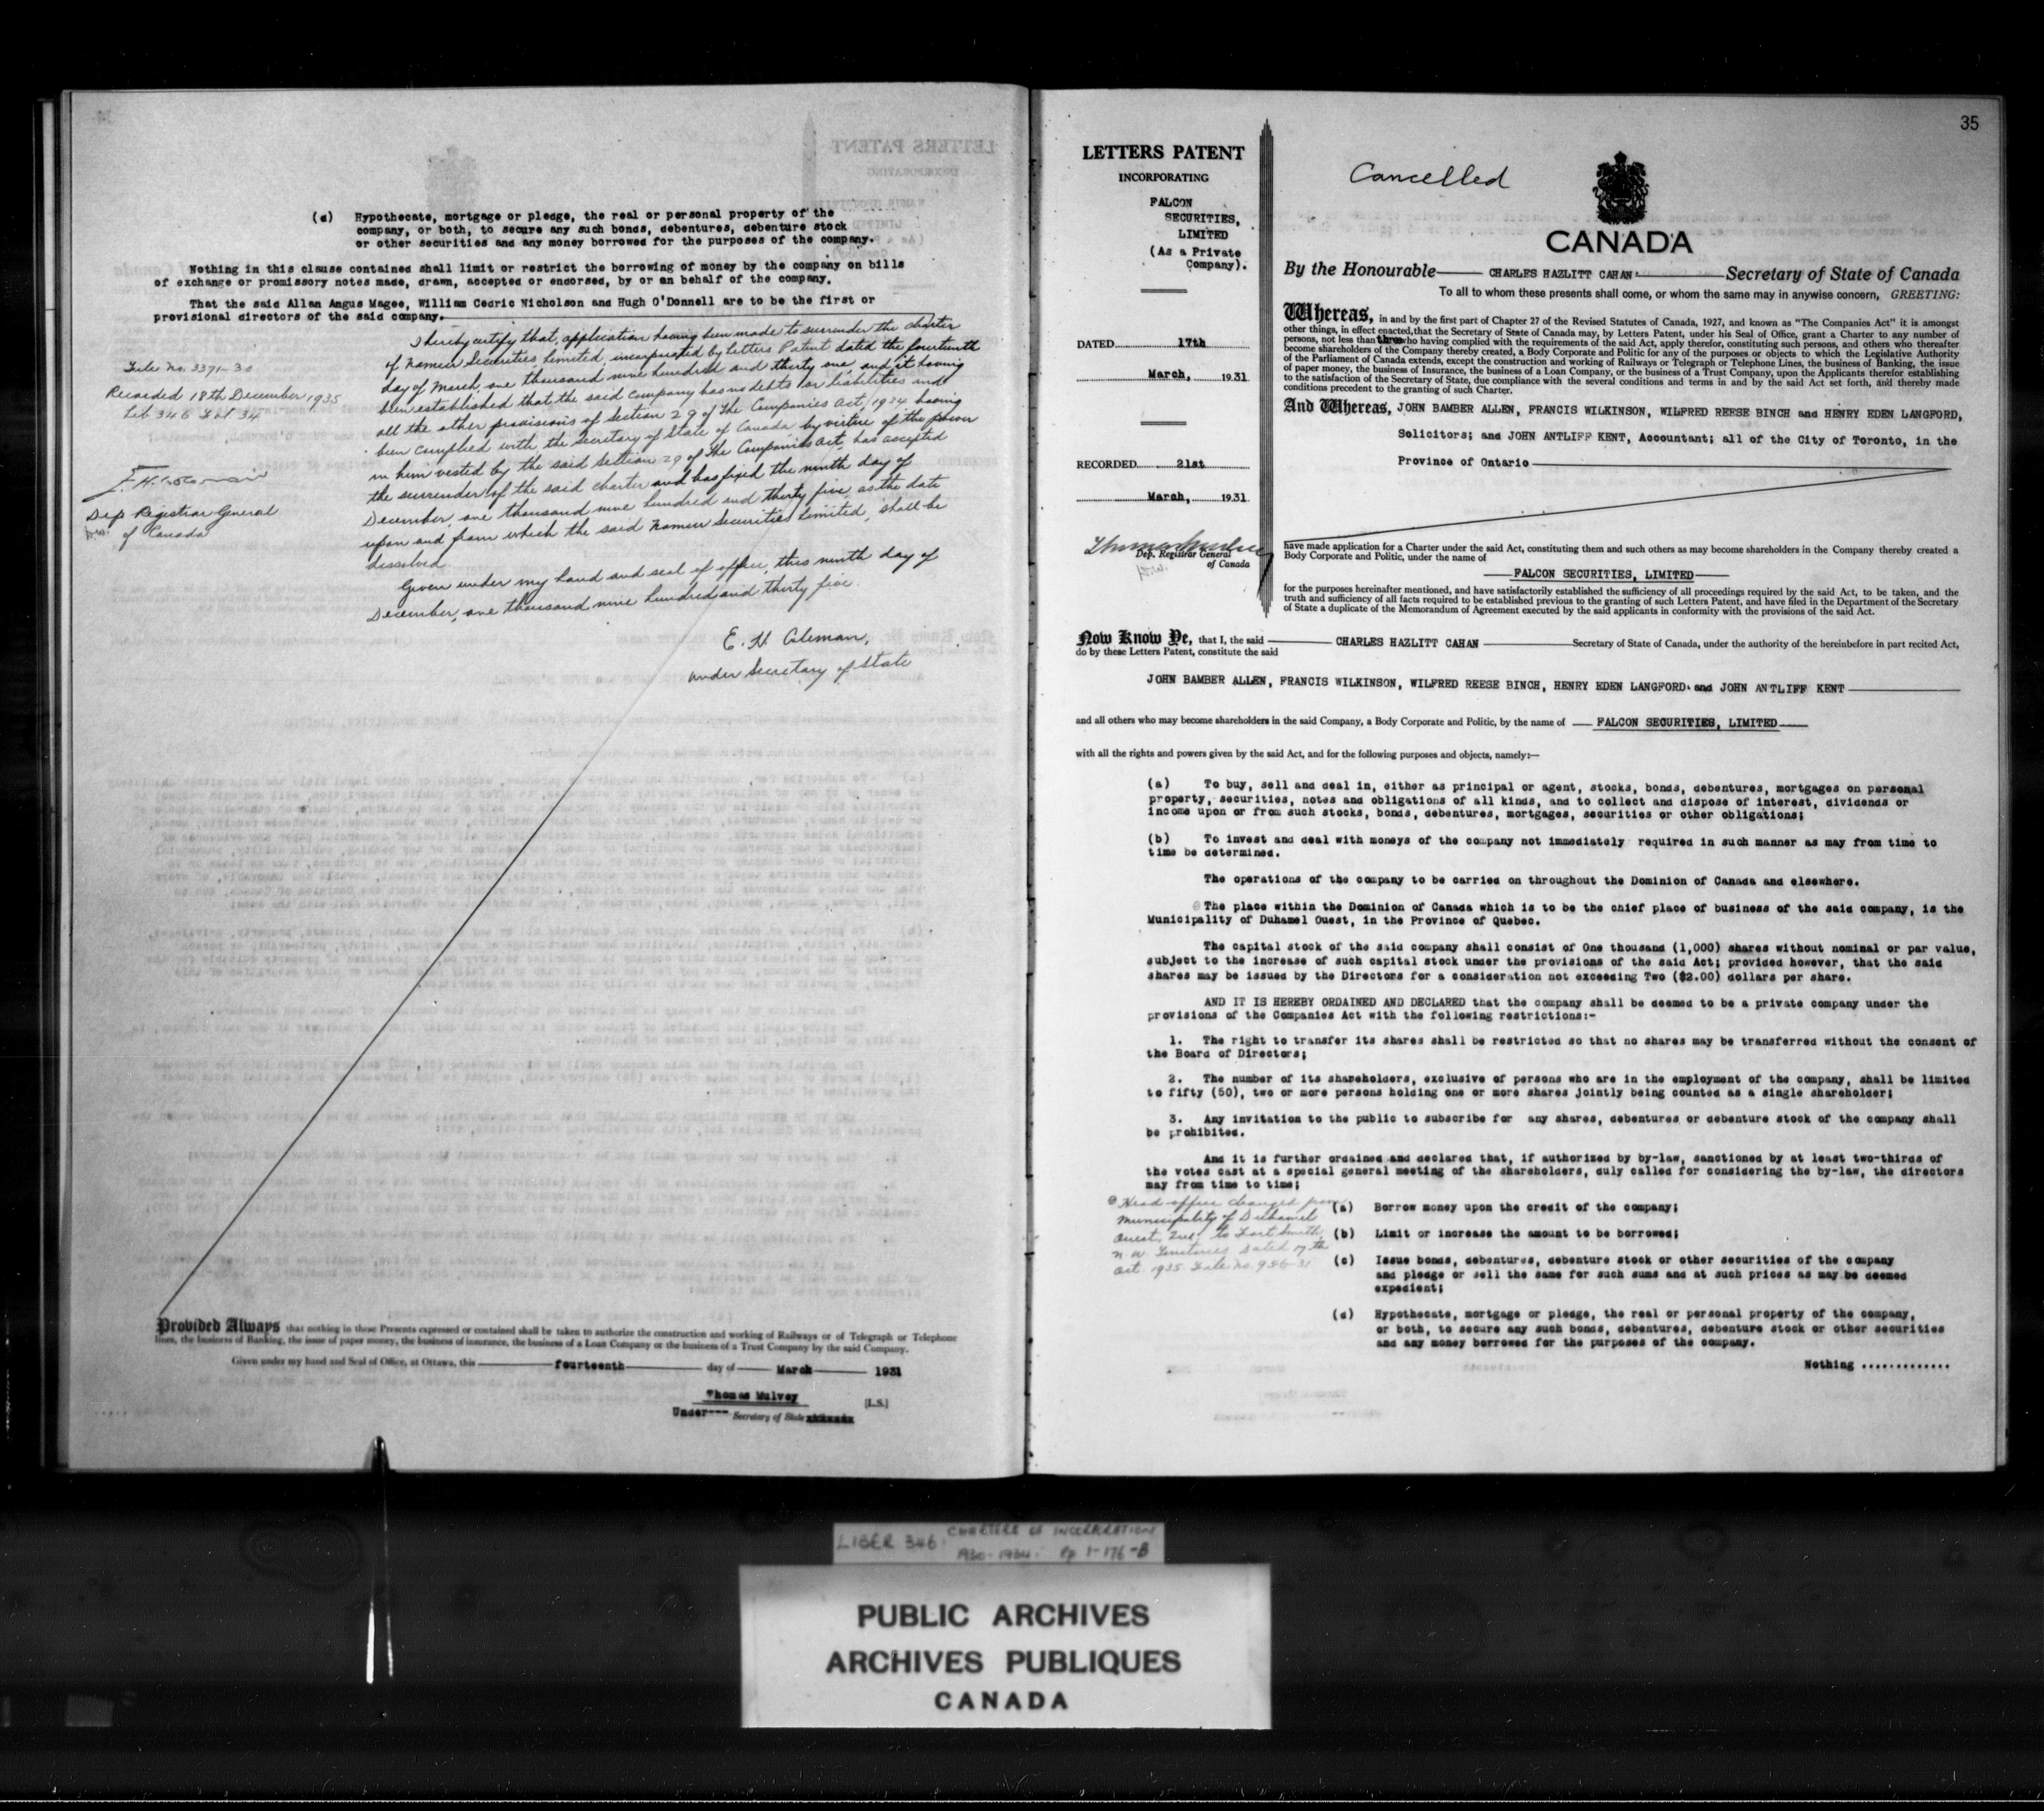 (d) Hypothecate, mortgage or pledge, the real or personal property of the
company, or both, to secure any such bonds, debentures, debenture stock
or other securities and any money borrowed for the purposes of the company.
Nothing in this clause contained shall limit or restrict the borrowing of money by the company on bills
of exchange or promissory notes made, drawn, accepted or endorsed, by or on behalf of the company.
That the said Allan Angus Magee, William Cedric Nicholson and Hugh O'Donnell are to be the first or
provisional directors of the said company.
I hereby certify that, application having been made to surrender the charter
of Namur Securities Limited, incorporated by Letters Patent dated the fourteenth
day of March, one thousand nine hundred and thirty one, and it having
been established that the said Company has no debts or liabilities and
all the other provisions of Section 29 of the Companies Act, 1934 having
been complied with the Secretary of State of Canada by virtue of the power
in him vested by the said section 29 of the Companies Act, has accepted
the surrender of the said charter and has fixed the ninth day of
December, one thousand nine hundred and thirty five, as the date
upon and from which the said Namur Securities Limited, shall be
dissolved.
Given under my hand and seal of office, this ninth day of
December, one thousand nine hundred and thirty five.
E. H. Coleman,
Under Secretary of State
File No. 3391-30
Recorded 18th December 1935
Lib 346 Fol 34
Dep Registrar General
of Canada
Provided Always that nothing in these Presents expressed or contained shall be taken to authorize the construction and working of Railways or of Telegraph or Telephone
lines, the business of Banking, the issue of paper money, the business of insurance, the business of a Loan Company or the business of a Trust Company by the said Company.
Given under my hand and Seal of Office, at Ottawa, this fourteenth day of March 1931
Thomas Mulvey
[L.S.]
Under--- Secretary of State
35
LETTERS PATENT
INCORPORATING
FALCON
SECURITIES,
LIMITED
(As a Private
Company).
DATED 17th
March, 1931
RECORDED 21st
March, 1931
Thomas Mulvey
Dep. Registrar General
of Canada
Cancelled
CANADA
By the Honourable CHARLES HAZLITT CAHAN Secretary of State of Canada
To all to whom these presents shall come, or whom the same may in anywise concern, GREETING:
Whereas, in and by the first part of Chapter 27 of the Revised Statutes of Canada, 1927, and known as "The Companies Act" it is amongst
other things, in effect enacted, that the Secretary of State of Canada may, by Letters Patent, under his Seal of Office, grant a Charter to any number of
persons, not less than three who having complied with the requirements of the said Act, apply therefor, constituting such persons, and others who thereafter
become shareholders of the Company thereby created, a Body Corporate and Politic for any of the purposes or objects to which the Legislative Authority
of the Parliament of Canada extends, except the construction and working of Railways or Telegraph or Telephone Lines, the business of Banking, the issue
of paper money, the business of Insurance, the business of a Loan Company, or the business of a Trust Company, upon the Applicants therefor establishing
to the satisfaction of the Secretary of State, due compliance with the several conditions and terms in and by the said Act set forth, and thereby made
conditions precedent to the granting of such Charter.
And Whereas, JOHN BAMBER ALLEN, FRANCIS WILKINSON, WILFRED REESE BINCH and HENRY EDEN LANGFORD,
Solicitors; and JOHN ANTLIFF KENT, Accountant; all of the City of Toronto, in the
Province of Ontario
have made application for a Charter under the said Act, constituting them and such others as may become shareholders in the Company thereby created a
Body Corporate and Politic, under the name of
FALCON SECURITIES, LIMITED
for the purposes hereinafter mentioned, and have satisfactorily established the sufficiency of all proceedings required by the said Act, to be taken, and the
truth and sufficiency of all facts required to be established previous to the granting of such Letters Patent, and have filed in the Department of the Secretary
of State a duplicate of the Memorandum of Agreement executed by the said applicants in conformity with the provisions of the said Act.
Now Know Ye, that I, the said CHARLES HAZLITT CAHAN Secretary of State of Canada, under the authority of the hereinbefore in part recited Act,
do by these Letters Patent, constitute the said
JOHN BAMBER ALLEN, FRANCIS WILKINSON, WILFRED REESE BINCH, HENRY EDEN LANGFORD and JOHN ANTLIFF KENT
and all others who may become shareholders in the said Company, a Body Corporate and Politic, by the name of FALCON SECURITIES, LIMITED
with all the rights and powers given by the said Act, and for the following purposes and objects, namely:—
(a) To buy, sell and deal in, either as principal or agent, stocks, bonds, debentures, mortgages on personal
property, securities, notes and obligations of all kinds, and to collect and dispose of interest, dividends or
income upon or from such stocks, bonds, debentures, mortgages, securities or other obligations;
(b) To invest and deal with moneys of the company not immediately required in such manner as may from time to
time be determined.
The operations of the company to be carried on throughout the Dominion of Canada and elsewhere.
The place within the Dominion of Canada which is to be the chief place of business of the said company, is the
Municipality of Duhamel Ouest, in the Province of Quebec.
The capital stock of the said company shall consist of One thousand (1,000) shares without nominal or par value,
subject to the increase of such capital stock under the provisions of the said Act; provided however, that the said
shares may be issued by the Directors for a consideration not exceeding Two ($2.00) dollars per share.
AND IT IS HEREBY ORDAINED AND DECLARED that the company shall be deemed to be a private company under the
provisions of the Companies Act with the following restrictions:-
1. The right to transfer its shares shall be restricted so that no shares may be transferred without the consent of
the Board of Directors;
2. The number of its shareholders, exclusive of persons who are in the employment of the company, shall be limited
to fifty (50), two or more persons holding one or more shares jointly being counted as a single shareholder;
3. Any invitation to the public to subscribe for any shares, debentures or debenture stock of the company shall
be prohibited.
And it is further ordained and declared that, if authorized by by-law, sanctioned by at least two-thirds of
the votes cast at a special general meeting of the shareholders, duly called for considering the by-law, the directors
may from time to time;
(a) Borrow money upon the credit of the company;
(b) Limit or increase the amount to be borrowed;
(c) Issue bonds, debentures, debenture stock or other securities of the company
and pledge or sell the same for such sums and at such prices as may be deemed
expedient;
(d) Hypothecate, mortgage or pledge, the real or personal property of the company,
or both, to secure any such bonds, debentures, debenture stock or other securities
and any money borrowed for the purposes of the company.
Nothing .............
Head office changed from
Municipality of Duhamel
Ouest, Que. to Fort Smith
N. W. Territories Dated 17th
Oct. 1935 File No. 956-31
LIBER 346. CHARTERS OF INCORPORATION
1930-1934. pp 1-176-B
PUBLIC ARCHIVES
ARCHIVES PUBLIQUES
CANADA